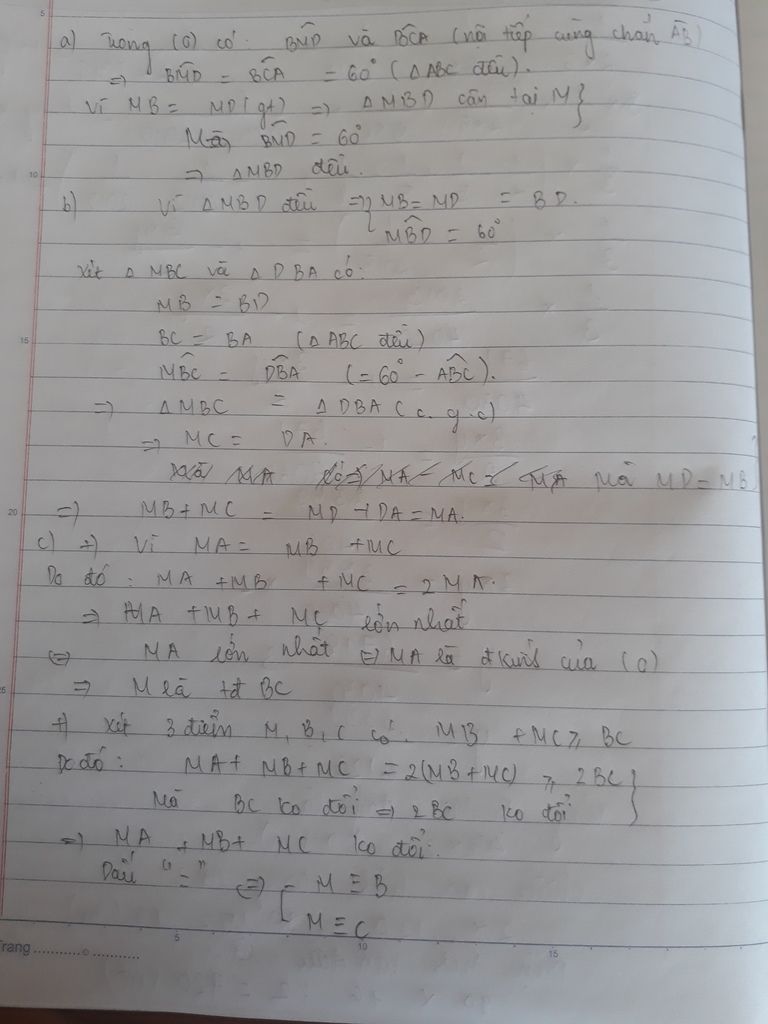 5
a) Trong (O) có: BM̂D và BĈA (nội tiếp cùng chắn AB)
=> BM̂D = BĈA = 60° (∆ ABC đều).
Vì MB = MD (gt) => ∆ MBD cân tại M }
Mà BM̂D = 60°
10
=> ∆ MBD đều.
b) Vì ∆ MBD đều => { MB = MD = BD.
MB̂D = 60°
Xét ∆ MBC và ∆ DBA có:
MB = BD
15
BC = BA (∆ ABC đều)
MB̂C = DB̂A (= 60° - AB̂C).
=> ∆ MBC = ∆ DBA (c.g.c)
=> MC = DA.
MA MA - MC = MA Mà MD = MB
20
=> MB + MC = MD + DA = MA.
c) +) Vì MA = MB + MC
Do đó: MA + MB + MC = 2 MA.
=> MA + MB + MC lớn nhất
<=> MA lớn nhất <=> MA là đkính của (O)
25
=> M là tđ BC
+) Xét 3 điểm M, B, C có: MB + MC ≥ BC
Do đó: MA + MB + MC = 2(MB + MC) ≥ 2BC }
Mà BC ko đổi => 2BC ko đổi
=> MA + MB + MC ko đổi.
Dấu "=" <=> [ M ≡ B
M ≡ C
Trang ...........© ...........
5 10 15